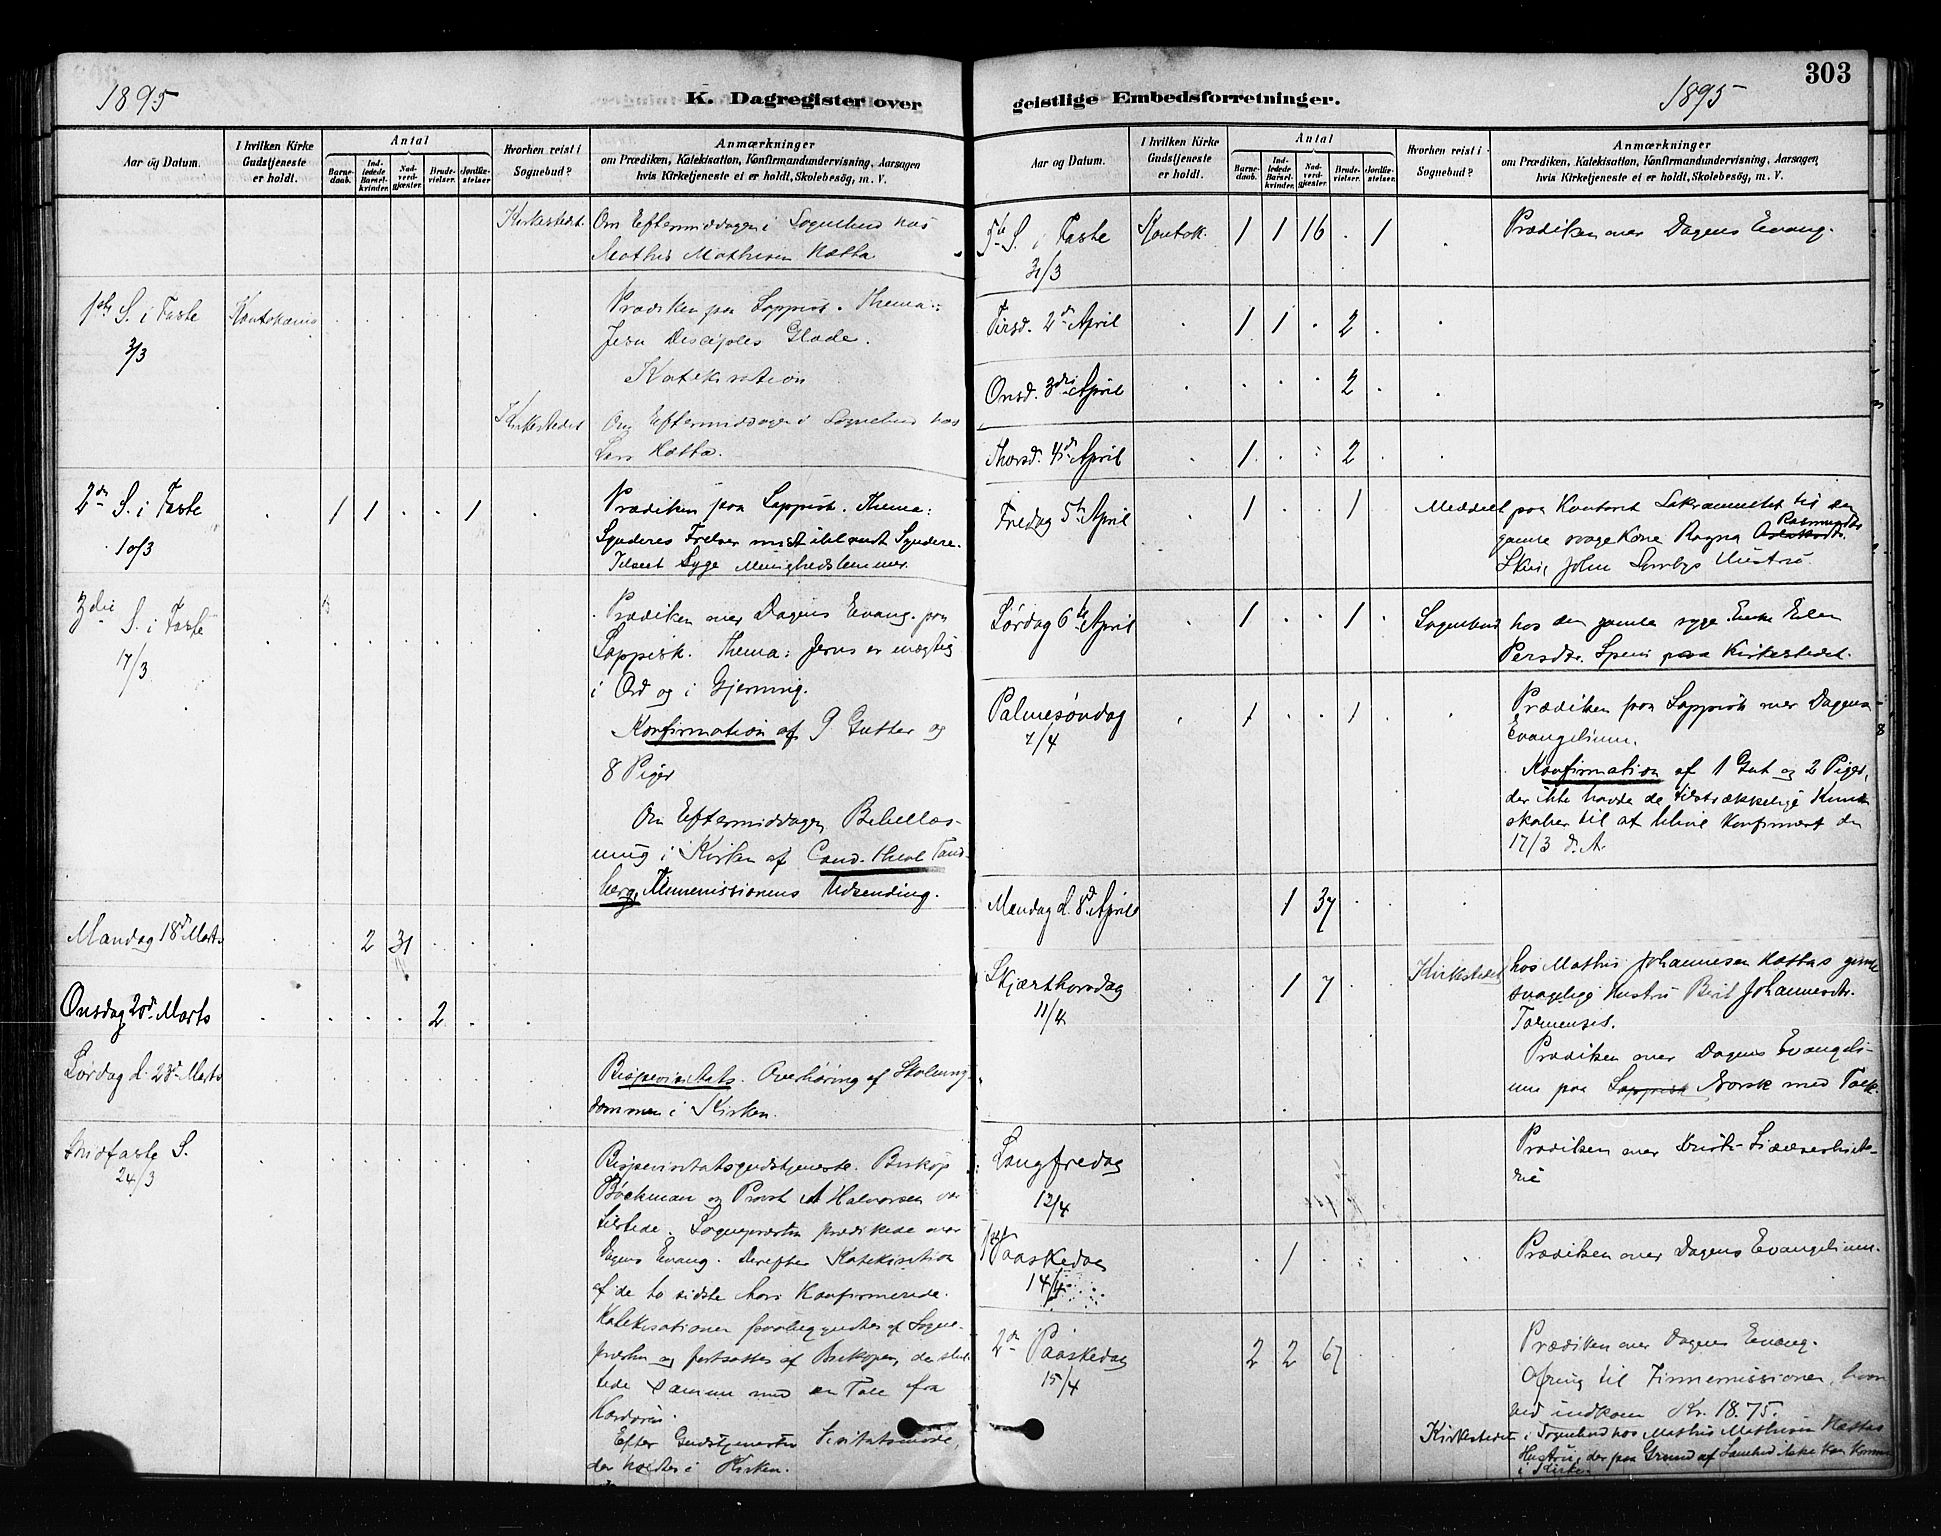 1895
K. Dagregister over
Aar og Datum.
I hvilken Kirke Gudstjeneste er holdt.
Antal
Barnedaab.
Indledede Barselkvinder.
Nadverdgjester.
Brudevielser.
Jordfæstelser.
Hvorhen reist i Sognebud?
Anmærkninger
om Prædiken, Katekisation, Konfirmandundervisning, Aarsagen
hvis Kirketjeneste ei er holdt, Skolebesøg, m. V.
Kirkestedet. Om Eftermiddagen i Sognebud hos
Mathis Mathisen Hætta
1ste S. i Faste Kautokeino Prædiken paa Lappisk. Thema:
3/3 Jesu Disciples Glæde.
Katekisation
Kirkestedet Om Eftermiddagen i Sognebud hos
Lars Hætta.
2den S. i Faste 1 1 1 Prædiken paa Lappisk. Thema:
10/3 Synderes Frelser
Tilseet syge Menighedslemmer.
3die S. i Faste Prædiken over Dagens Evang. paa
17/3 Lappisk. Thema: Jesus er mægtig
i Ord og i Gjerning.
Konfirmation af 9 Gutter og
8 Piger
Om Eftermiddagen Bibellæs-
ning i Kirken af Cand. theol Tand-
berg, Finnemissionens Udsending.
Mandag 18d Marts 2 31
Onsdag 20d Marts 2
Lørdag d. 23d Marts Bispevisitats. Overhøring af Skoleung-
dommen i Kirken.
Midfaste S. Bispevisitatsgudstjeneste. Biskop
24/3 Bøckman og Provst A Halvorsen var
tilstede. Sognepresten prædikede over
Dagens Evang. Derefter Katekisation
af de to sidste Aars Konfirmerede.
Katekisationen paabegyndtes af Sogne-
presten og fortsattes af Biskopen, der slut-
tede samme med en Tale fra
Kordøren.
Efter Gudstjenesten Visitatsmøde,
der holdtes i Kirken.
303
geistlige Embedsforretninger.
1895
Aar og Datum.
I hvilken Kirke Gudstjeneste er holdt.
Antal
Barnedaab.
Indledede Barselkvinder.
Nadverdgjester.
Brudevielser.
Jordfæstelser.
Hvorhen reist i Sognebud?
Anmærkninger
om Prædiken, Katekisation, Konfirmandundervisning, Aarsagen
hvis Kirketjeneste ei er holdt, Skolebesøg, m. V.
5te S. i Faste Kautok. 1 1 16 1 Prædiken over Dagens Evang.
31/3
Tirsd. 2den April 1 1 2
Onsd. 3die April 2
Thorsd. 4de April 1 2
Fredag 5te April 1 1 Meddelt paa Kontoret Sakramentet til den
gamle svage Kone Ragna Rasmusdtr
Skui, John Hustru.
Lørdag 6te April 1 1 Sognebud hos den gamle syge Enke Elen
Persdtr. Spein paa Kirkestedet.
Palmesøndag 1 1 Prædiken paa Lappisk over Dagens
7/4 Evangelium.
Konfirmation af 1 Gut og 2 Piger,
der ikke havde de tilstrækkelige Kund-
skaber til at blive konfirmeret den
17/3 d. A.
Mandag d. 8d April 1 37
Skjærthorsdag 1 7 Kirkestedet hos Mathis Johannesen Hættas gamle
11/4 svagelige Hustru Berit Johannesdtr.
Tornensis.
Prædiken over Dagens Evangeli-
um paa Lappisk Norsk med Tolk.
Langfredag Prædiken over Kristi Lidelseshisto-
12/4 rie
1ste Paaskedag 1 Prædiken over Dagens Evangelium.
14/4
2den Paaskedag 2 2 67 Prædiken over Dagens Evang.
15/4 Ofring til Finnemissionen, hvor-
ved indkom Kr. 18.75.
Kirkestedet i Sognebud hos Mathis Mathisen Hættas
Hustru, der paa Grund af ikke kan komme
i Kirke.